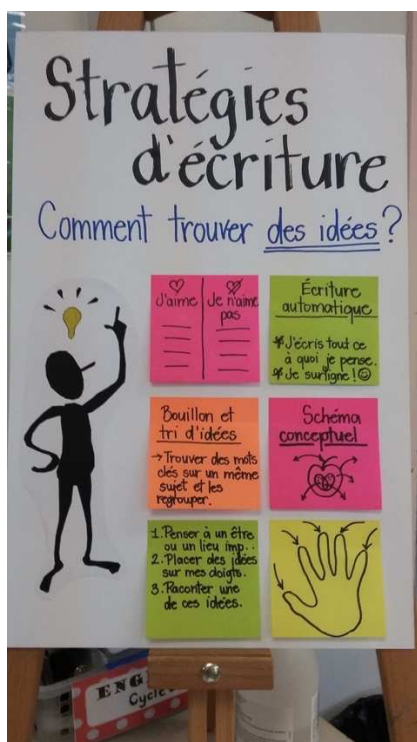 Stratégies
d'écriture
Comment trouver des idées?
J'aime
Je n'aime
pas
Écriture
automatique
J'écris tout ce
à quoi je pense.
Je surligne!
Bouillon et
tri d'idées
→ Trouver des mots
clés sur un même
sujet et les
regrouper.
Schéma
conceptuel
1. Penser à un être
ou un lieu imp...
2. Placer des idées
sur mes doigts.
3. Raconter une
de ces idées.
ENG
Cycle